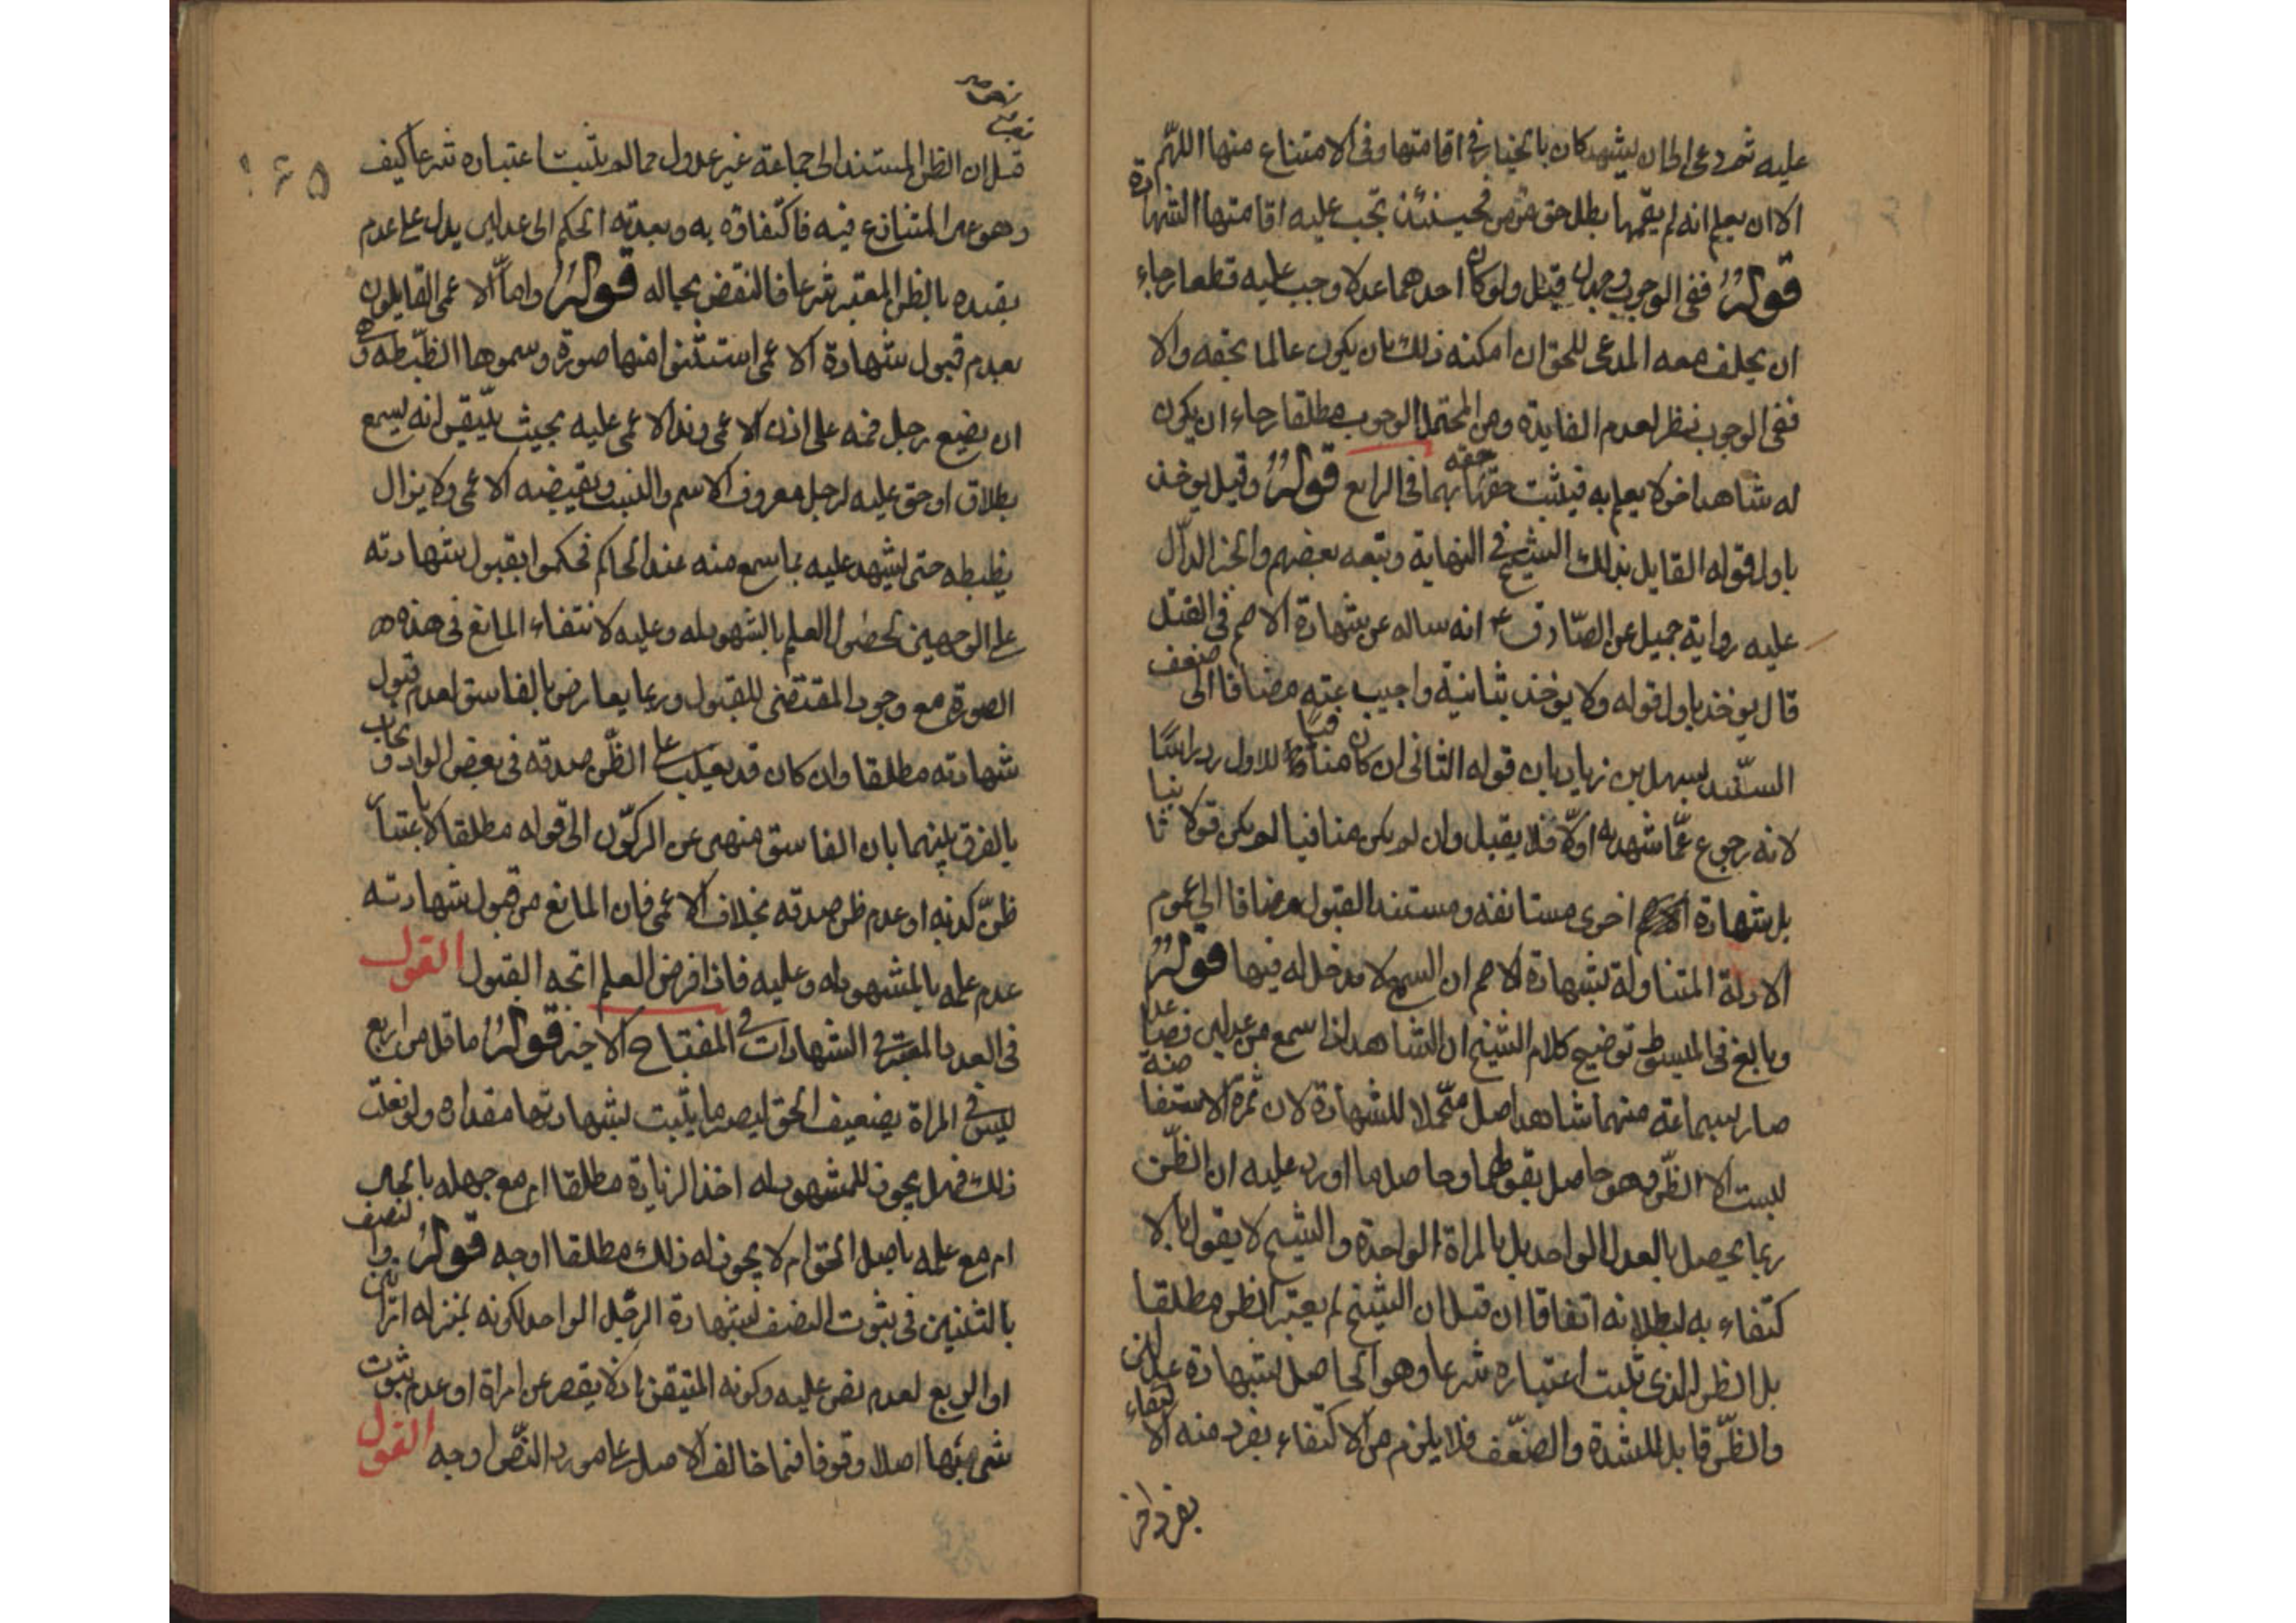 عليه ثم دعى الى ان يشهد كان بالخيار فى اقامتها وفى الامتناع منها اللّهم
الا ان يعلم انه لم يقمها بطل حق مؤمن فحينئذ تجب عليه اقامتها الشهادة
قوله ففى الوجوب وجهان قيل ولو كان احدهما عدلا وجب عليه قطعا رجاء
ان يحلف معه المدعى للحق ان امكنه ذلك بان يكون عالما بحقه والا
ففى الوجوب نظر لعدم الفايدة ومن المحتمل الوجوب مطلقا رجاء ان يكون
له شاهد اخر لا يعلم به فيثبت حقه بهما فى الرابع قوله وقيل يوخذ
باول قوله القايل بذلك الشيخ فى النهاية وتبعه بعضهم والخبر الدالّ
عليه رواية جميل عن الصّادق ع انه ساله عن شهادة الاصم فى القتل
قال يوخذ باول قوله ولا يوخذ بثانيه واجيب عنه مضافا الى ضعف
السّند بسهل بن زياد بان قوله الثانى ان كان منافيا للاول رد راسًا
لانه رجوع عمّا شهد به اولا فلا يقبل وان لم يكن منافيا لم يكن قولا ثانيا
بل شهادة اخرى مستانفه ومستند القبول مضافا الى عموم
الادلة المتناولة لشهادة الاصم ان السمع لا مدخل له فيها قوله
وبالغ فى المبسوط توضيح كلام الشيخ ان الشاهد اذا سمع من عدلين فصاعدا
صار بسماعه منهما شاهد اصل متحملا للشهادة لان ثمرة الاستفاضه
ليست الا الظّن وهو حاصل بقولهما وحاصل ما اورد عليه ان الظّن
ربما يحصل بالعدل الواحد بل بالمراة الواحدة والشيخ لا يقول بالا
كتفاء به لبطلانه اتفاقا ان قيل ان الشيخ لم يعتبر الظن مطلقا
بل الظن الذى ثبت اعتباره شرعا وهو الحاصل بشهادة عدلين
والظّن قابل للشدة والضعف فلا يلزم من الاكتفاء بفرد منه الاكتفاء
بفرد اخر
١٤٥
قيل ان الظن المستند الى جماعة غير عدول مما لم يثبت اعتباره شرعا كيف
وهو عين المتنازع فيه فاكتفاؤه به وتعديته الحكم الى عدلين يدل على عدم
تقييده بالظن المعتبر شرعا فالنقض بحاله قوله واما الاعمى القايلون
بعدم قبول شهادة الاعمى استثنوا منها صورة وسموها الضبطه وهى
ان يضع رجل فمه على اذن الاعمى ويد الاعمى عليه بحيث يتيقن انه يسمع
بطلاق او حق عليه لرجل معروف الاسم والنسب ويقبضه الاعمى ولا يزال
يظبطه حتى يشهد عليه بما سمع منه عند الحاكم فحكموا بقبول شهادته
على الوجهين لحصول العلم بالمشهود له وعليه لانتفاء المانع فى هذه
الصورة مع وجود المقتضى للقبول وربما يعارض بالفاسق لعدم قبول
شهادته مطلقا وان كان قد يغلب على الظّن صدقه فى بعض الموارد ويجاب
بالفرق بينهما بان الفاسق منهى عن الركون الى قوله مطلقا لا باعتبار
ظنّ كذبه او عدم ظن صدقه بخلاف الاعمى فان المانع من قبول شهادته
عدم علمه بالمشهود له وعليه فاذا فرض العلم اتجه القبول القول
فى العدد المعتبر فى الشهادات فى المفتاح الاخير قوله ما قل من اربع
ليس فى المراة تضعيف الحق ليصير ما يثبت بشهادتها مقداره ولو فعلت
ذلك فهل يجوز للمشهود له اخذ الزيادة مطلقا ام مع جهله بالحال
ام مع علمه باصل الحق ام لا يجوز له ذلك مطلقا اوجه قوله والنصف
بالثنتين فى ثبوت النصف بشهادة الرجل الواحد لكونه بمنزلة امراتين
او الربع لعدم نص عليه وكونه المتيقن اذ لا يقصر عن امراة او عدم ثبوت
شى بها اصلا وقوفا فيما خالف الاصل على مورد النّص اوجه القول